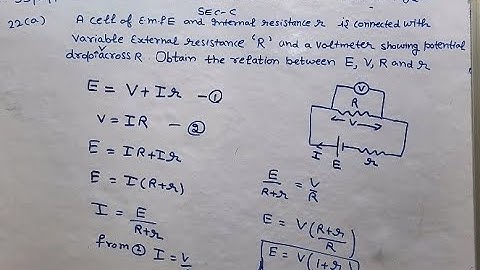 SEC-C
22(a) A cell of EmfE and internal resistance r is connected with
variable External resistance 'R' and a voltmeter showing potential
drop V across R. Obtain the relation between E, V, R and r
E = V + Ir —①
V = IR —②
E = IR + Ir
E = I(R+r)
I = E/R+r
from ② I = V/
V
R
V
I
E
r
E/R+r = V/R
E = V(R+r/R)
E = V(1+r/